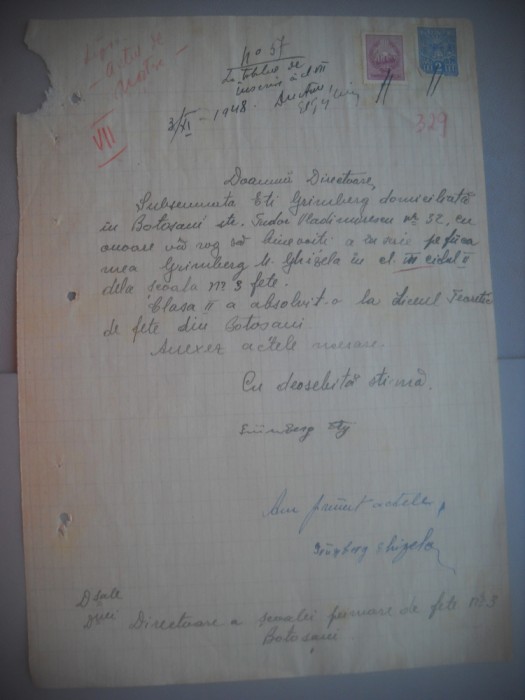 Lipsă
- actul de
naștere -
VII
No 57
La tabloul de
înscriere a cl VII
3/XI - 1948. Directoare,
2
329
Doamnă Directoare,
Subsemnata Eti Grimberg domiciliată
în Botoșani str. Tudor Vladimirescu nr. 52, cu
onoare vă rog să binevoiți a înscrie pe fiica
mea Grimberg M. Ghizela în cl. III ciclul II
dela școala nº 3 fete.
Clasa II a absolvit-o la Liceul Teoretic
de fete din Botoșani
Anexez actele necesare.
Cu deosebită stimă,
Grünberg Ety
Am primit actele,
Grünberg Ghizela
D sale
Dnei Directoare a școalei primare de fete Nº 3
Botoșani